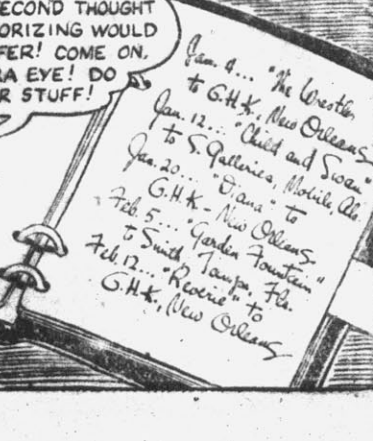 SECOND THOUGHT
ORIZING WOULD
FER! COME ON,
RA EYE! DO
R STUFF!
Jan. 4... "The Wrestler
to G.H.K., New Orleans
Jan. 12... "Child and Swan"
to S. Galleries, Mobile, Ala.
Jan. 20... "Diana" to
G.H.K. New Orleans.
Feb. 5... "Garden Fountain"
to Smith, Tampa, Fla.
Feb. 12... "Reverie" to
G.H.K., New Orleans